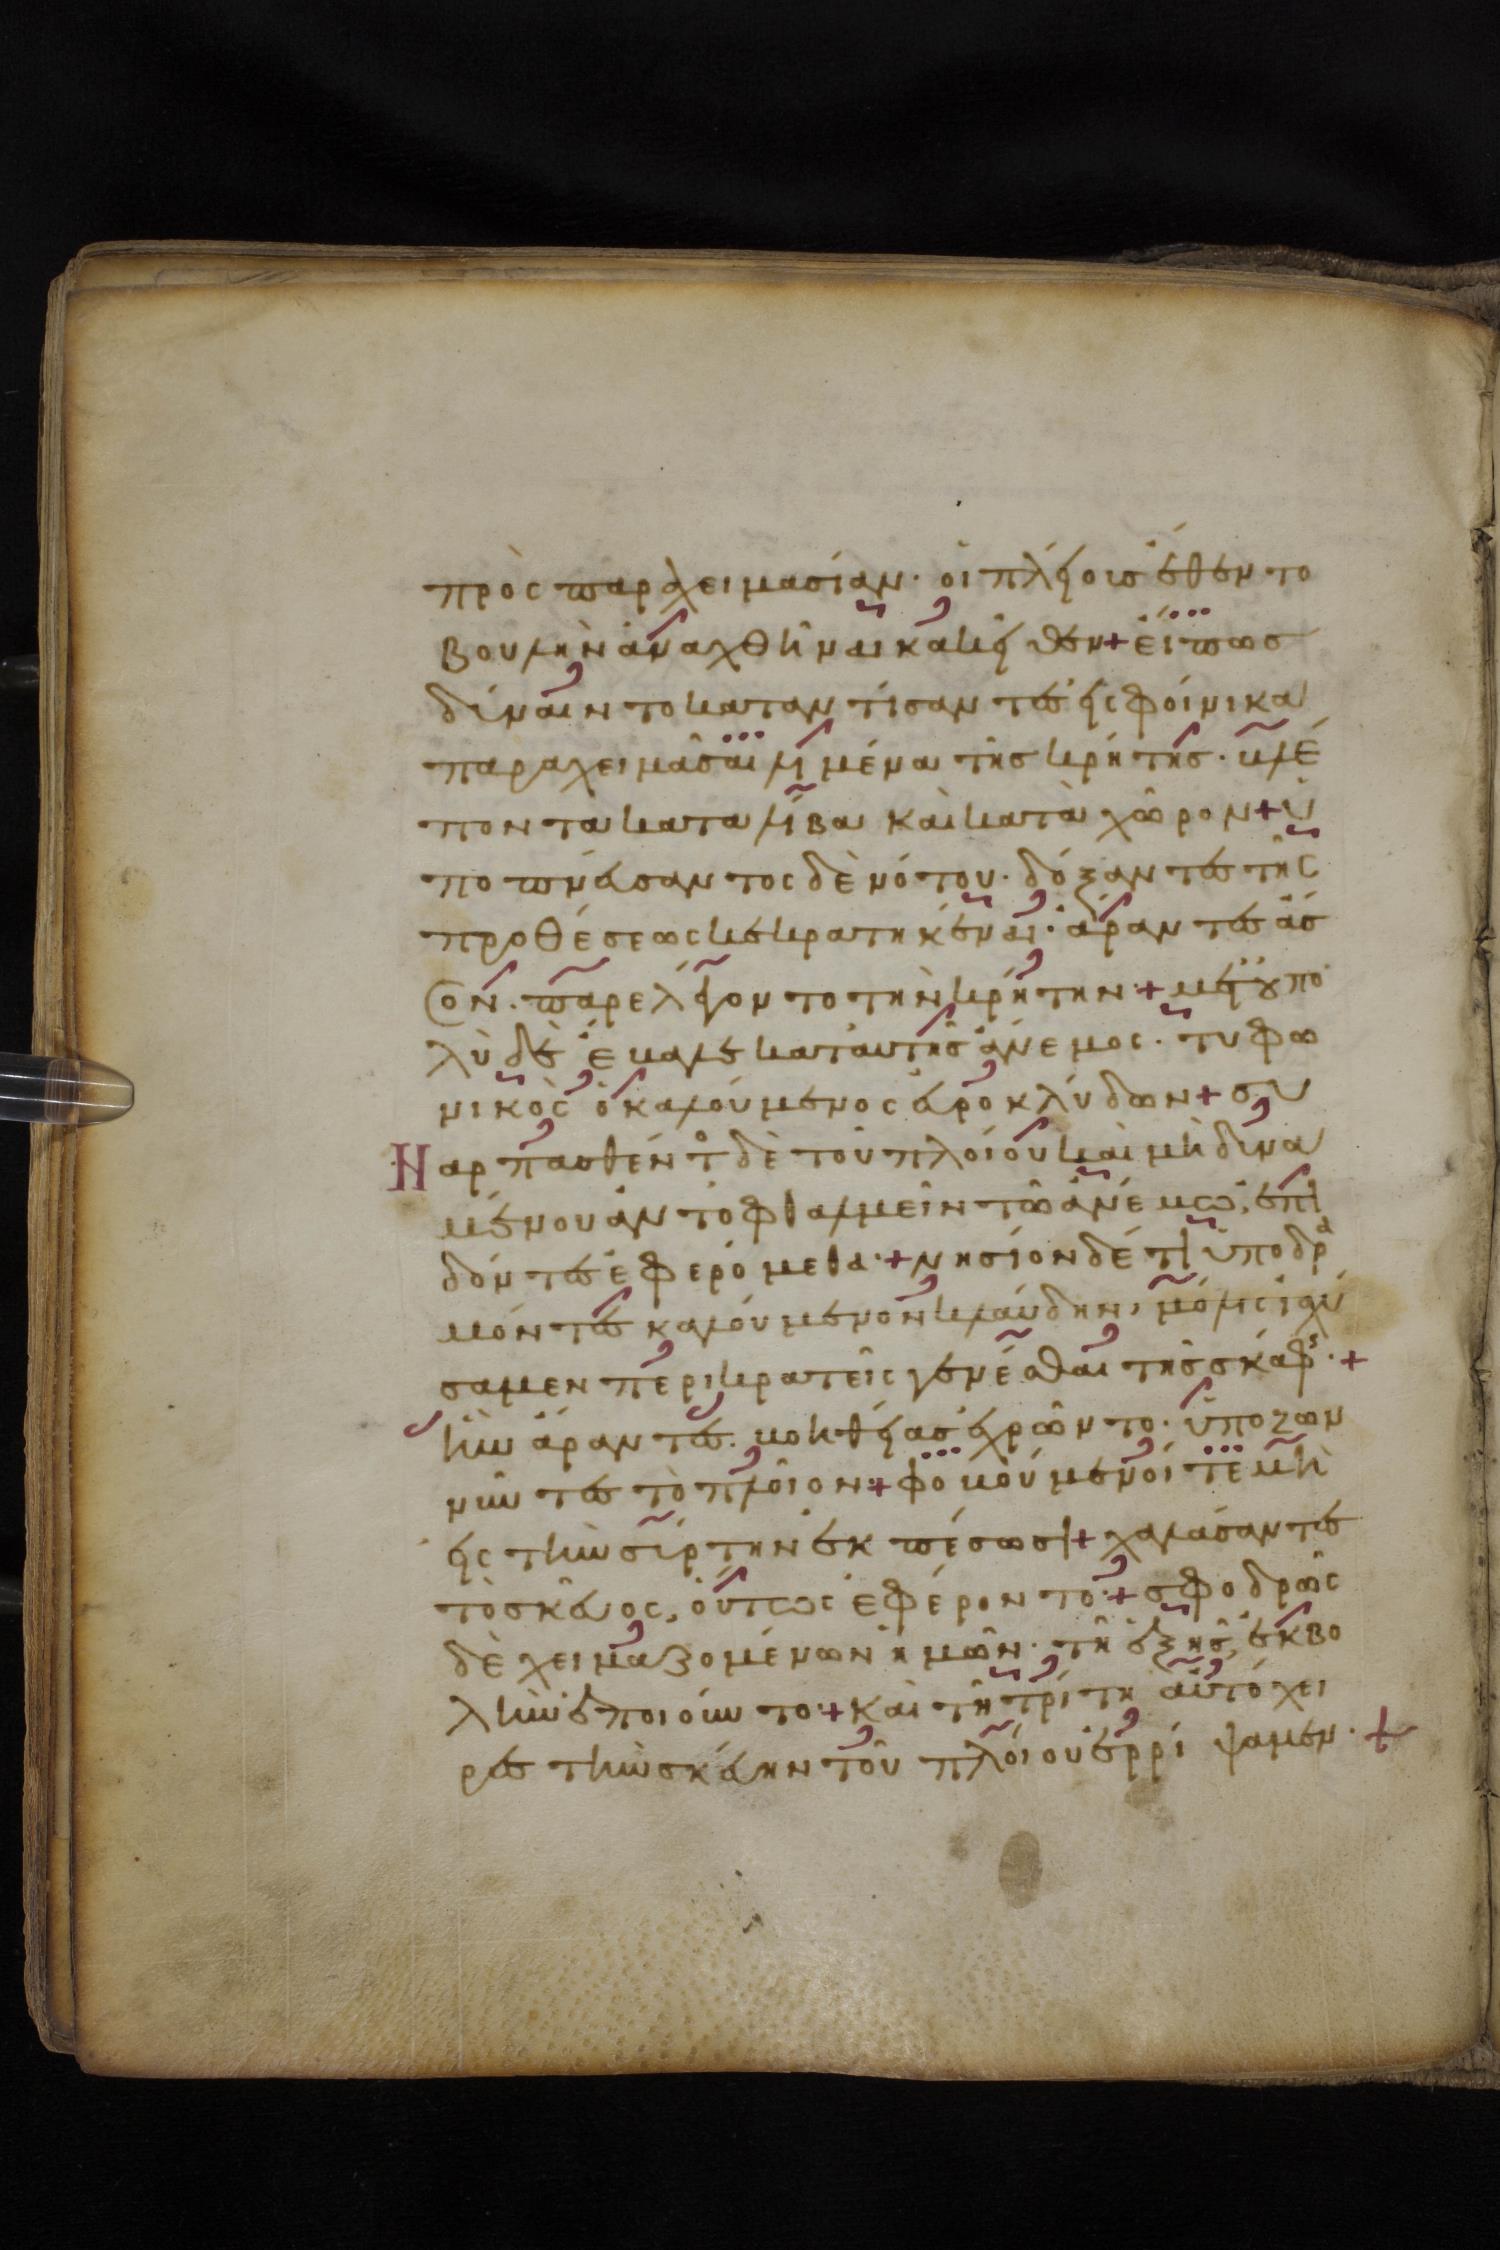 πρὸς παραχειμασίαν· οἱ πλείοις ἔθεντο
βουλὴν ἀναχθῆναι κακεῖθεν + εἴ πως
δύναιντο καταντίσαντες εἰς φοίνικα
παραχειμᾶσαι λιμένα τῆς κρήτης· βλέ
ποντα κατα λίβα καὶ κατὰ χῶρον + ὑ
ποπνεύσαντος δὲ νότου· δόξαντες τῆς
προθέσεως κεκρατηκέναι· ἄραντες ἆσ
σον· παρελέγοντο τὴν κρήτην + μετ οὐ πο
λὺ δὲ ἔβαλε κατ αυτῆς ἄνεμος· τυφω
νικὸς ὁ καλούμενος εὐροκλύδων + συ
Ναρπασθέντ(ο) δὲ τοῦ πλοίου καὶ μὴ δυνα
μένου ἀντοφθαλμεῖν τῶ ἀνέμω, ἐπι
δόντες ἐφερόμεθα + νησίον δέ τι ὑποδρ(α)
μόντες καλούμενον κλαύδην, μόλις ἰσχύ
σαμεν περικρατεῖς γενέσθαι τῆς σκάφ(ης) +
ἣν ἄραντες. βοηθείας ἐχρῶντο· ὑποζων
νύντες τὸ πλοῖον + φοβούμενοί τε μὴ
εἰς τὴν σύρτην ἐκπέσωσι + χαλάσαντες
τὸ σκεύος, οὕτως ἐφέροντο + σφοδρῶς
δὲ χειμαζομένων ἡμῶν· τῆ ἑξῆς, ἐκβο
λὴν ἐποιοῦντο + καὶ τῆ τρίτη αὐτόχει
ρες τὴν σκεύην τοῦ πλοίου ἐρρίψαμεν· +